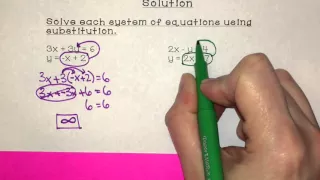 Solution
Solve each system of equations using
substitution.
3x + 3y = 6
y = -x + 2
3x + 3(-x+2) = 6
3x + -3x + 6 = 6
6 = 6
∞
2x - y
y = 2x